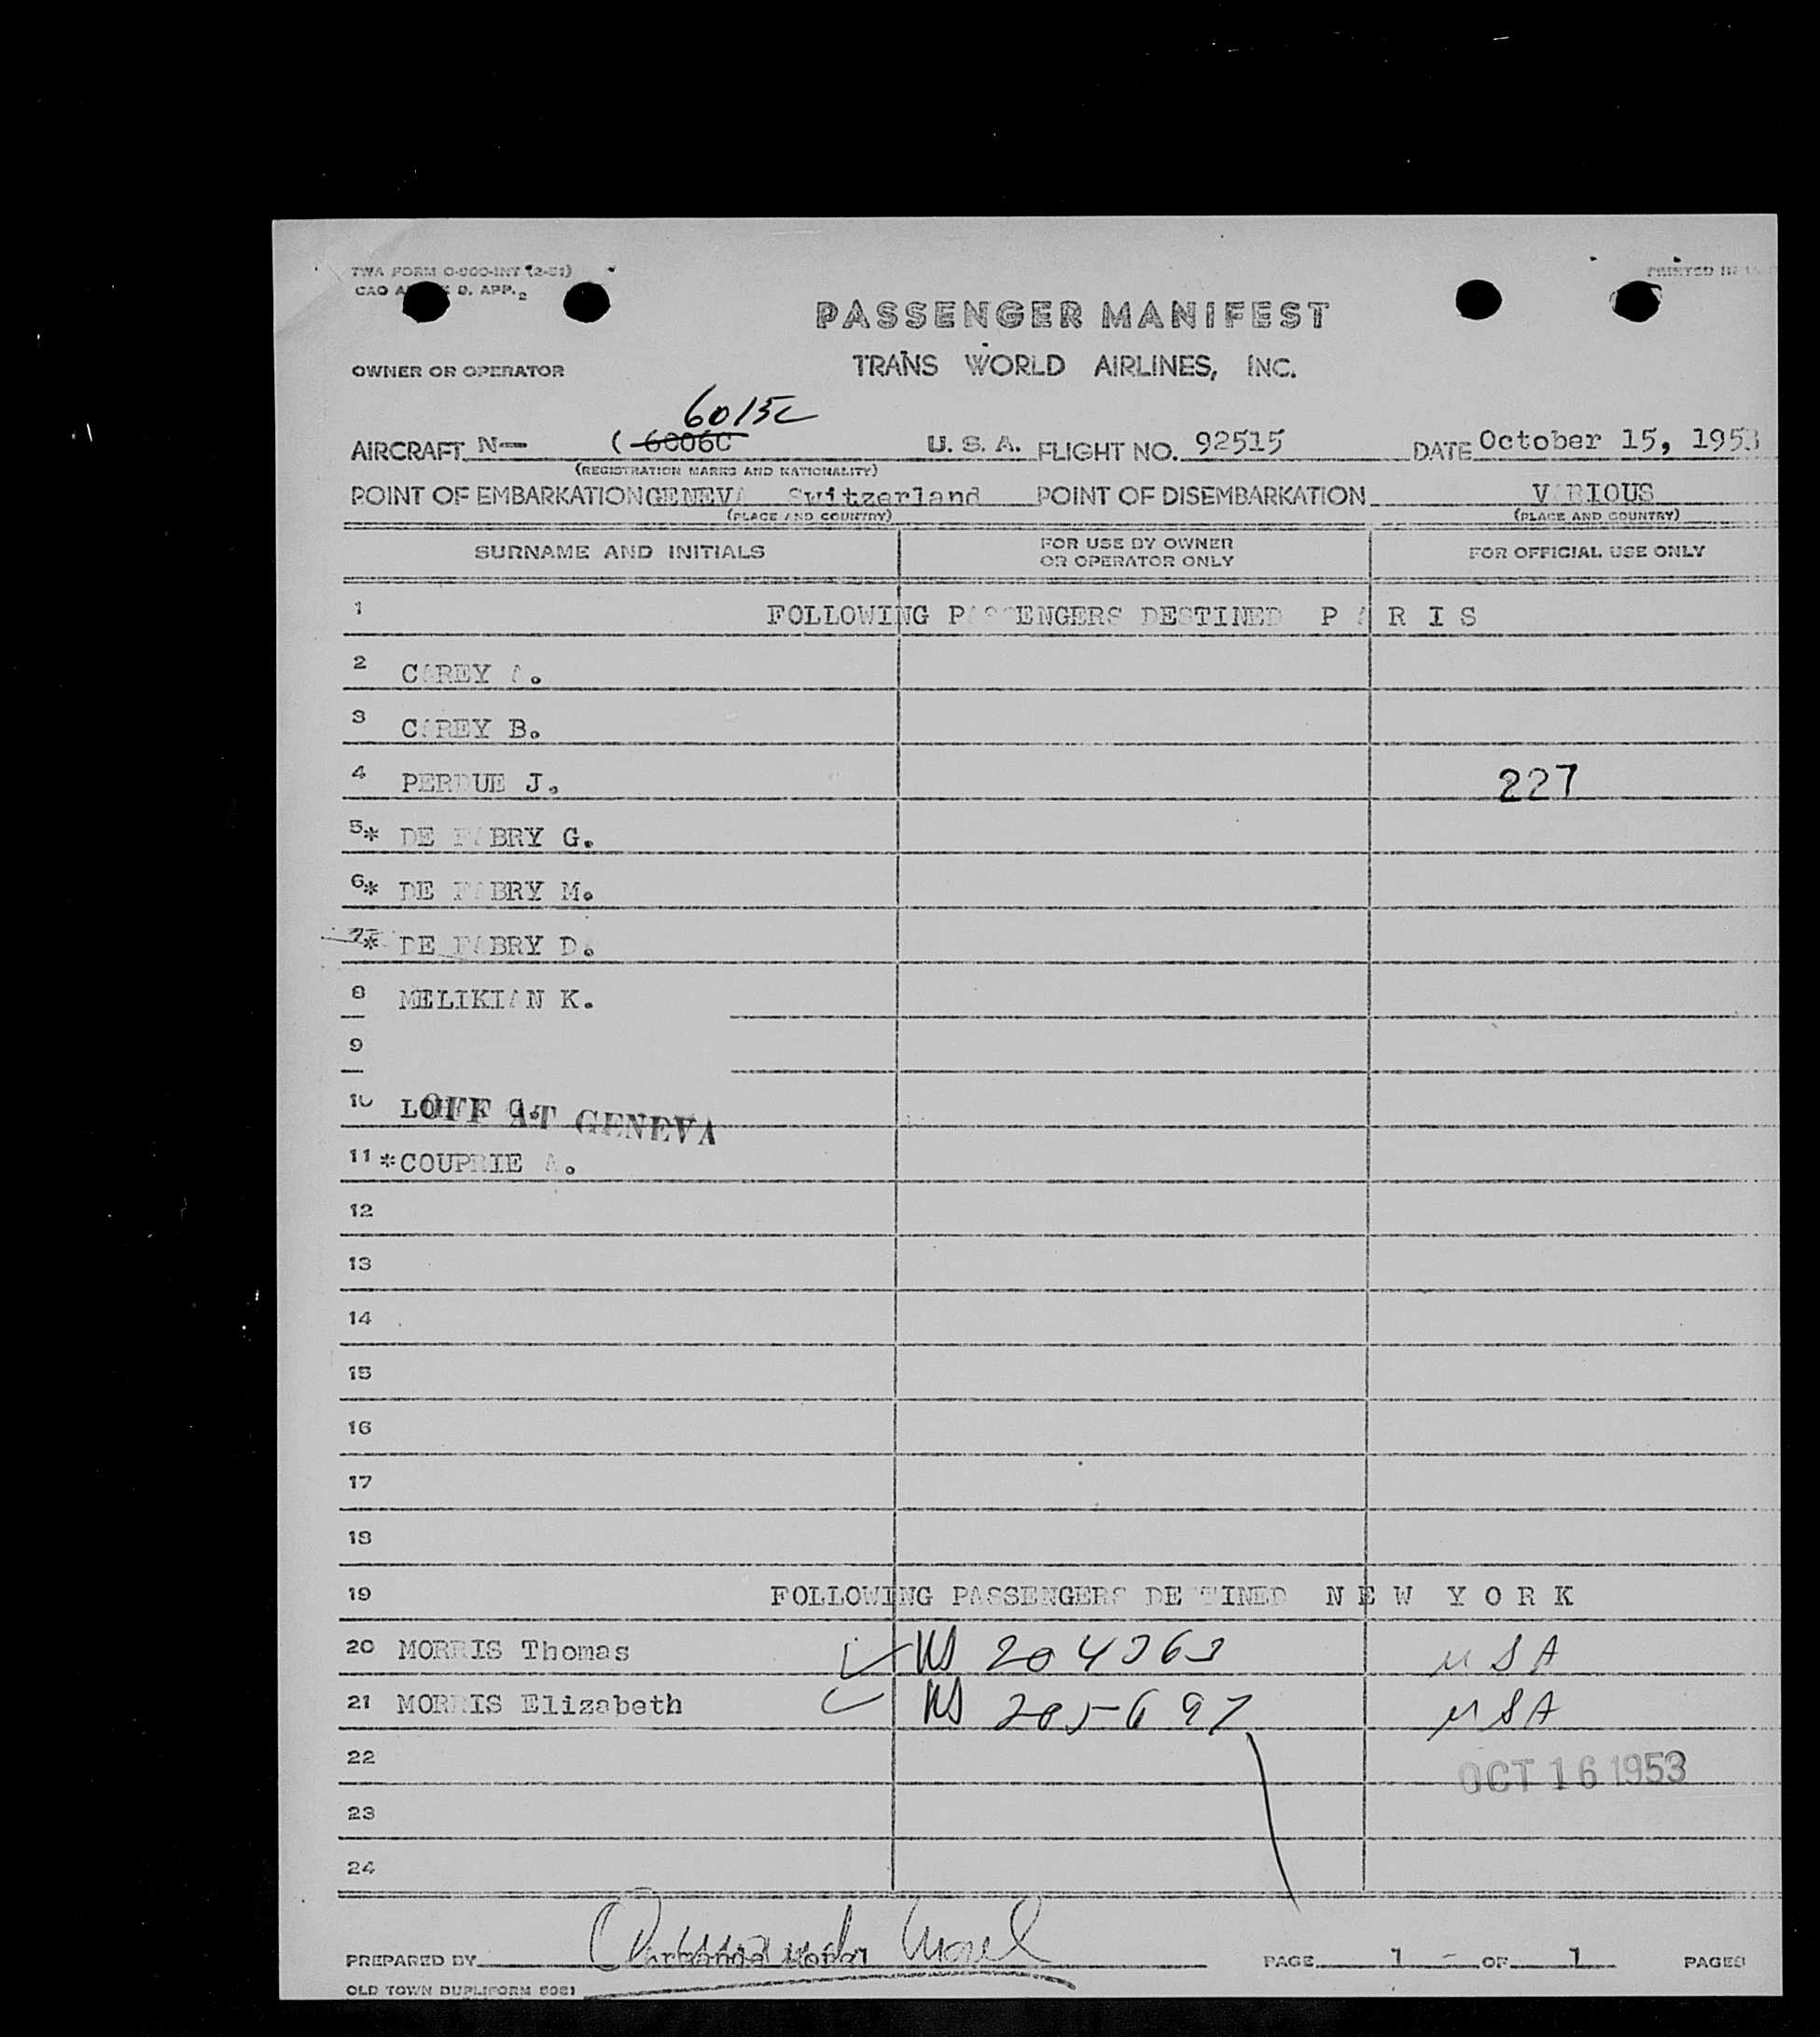 TWA FORM O-900-INT (2-51)
PRINTED IN U.
D. APP. 2
PASSENGER MANIFEST
OWNER OR OPERATOR
TRANS WORLD AIRLINES, INC.
6015C
AIRCRAFT N— ( 6006C U. S. A. FLIGHT NO. 92515 DATE October 15, 1953
(REGISTRATION MARKS AND NATIONALITY)
POINT OF EMBARKATION GENEVA Switzerland POINT OF DISEMBARKATION VARIOUS
(PLACE AND COUNTRY) (PLACE AND COUNTRY)
SURNAME AND INITIALS FOR USE BY OWNER OR OPERATOR ONLY FOR OFFICIAL USE ONLY
1 FOLLOWING PASSENGERS DESTINED P A R I S
2 CAREY A.
3 CAREY B.
4 PERDUE J. 227
5* DE FABRY G.
6* DE FABRY M.
7* DE FABRY D.
8 MELIKIAN K.
9
10 OFF AT GENEVA
11 *COUPRIE A.
12
13
14
15
16
17
18
19 FOLLOWING PASSENGERS DESTINED N E W Y O R K
20 MORRIS Thomas 204363 USA
21 MORRIS Elizabeth 205697 USA
22 OCT 16 1953
23
24
PREPARED BY PAGE 1 - OF 1 PAGES
OLD TOWN DUPLIFORM